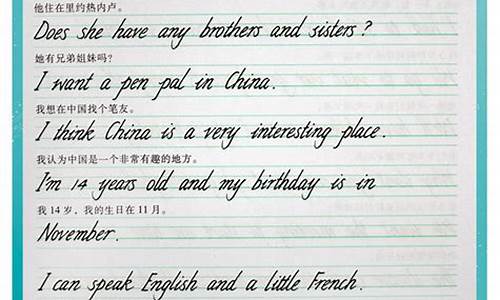 他住在里约热内卢。
Does she have any brothers and sisters?
她有兄弟姐妹吗?
I want a pen pal in China.
我想在中国找个笔友。
I think China is a very interesting place.
我认为中国是一个非常有趣的地方。
I'm 14 years old and my birthday is in
我 14 岁，我的生日在 11 月。
November.
I can speak English and a little French.